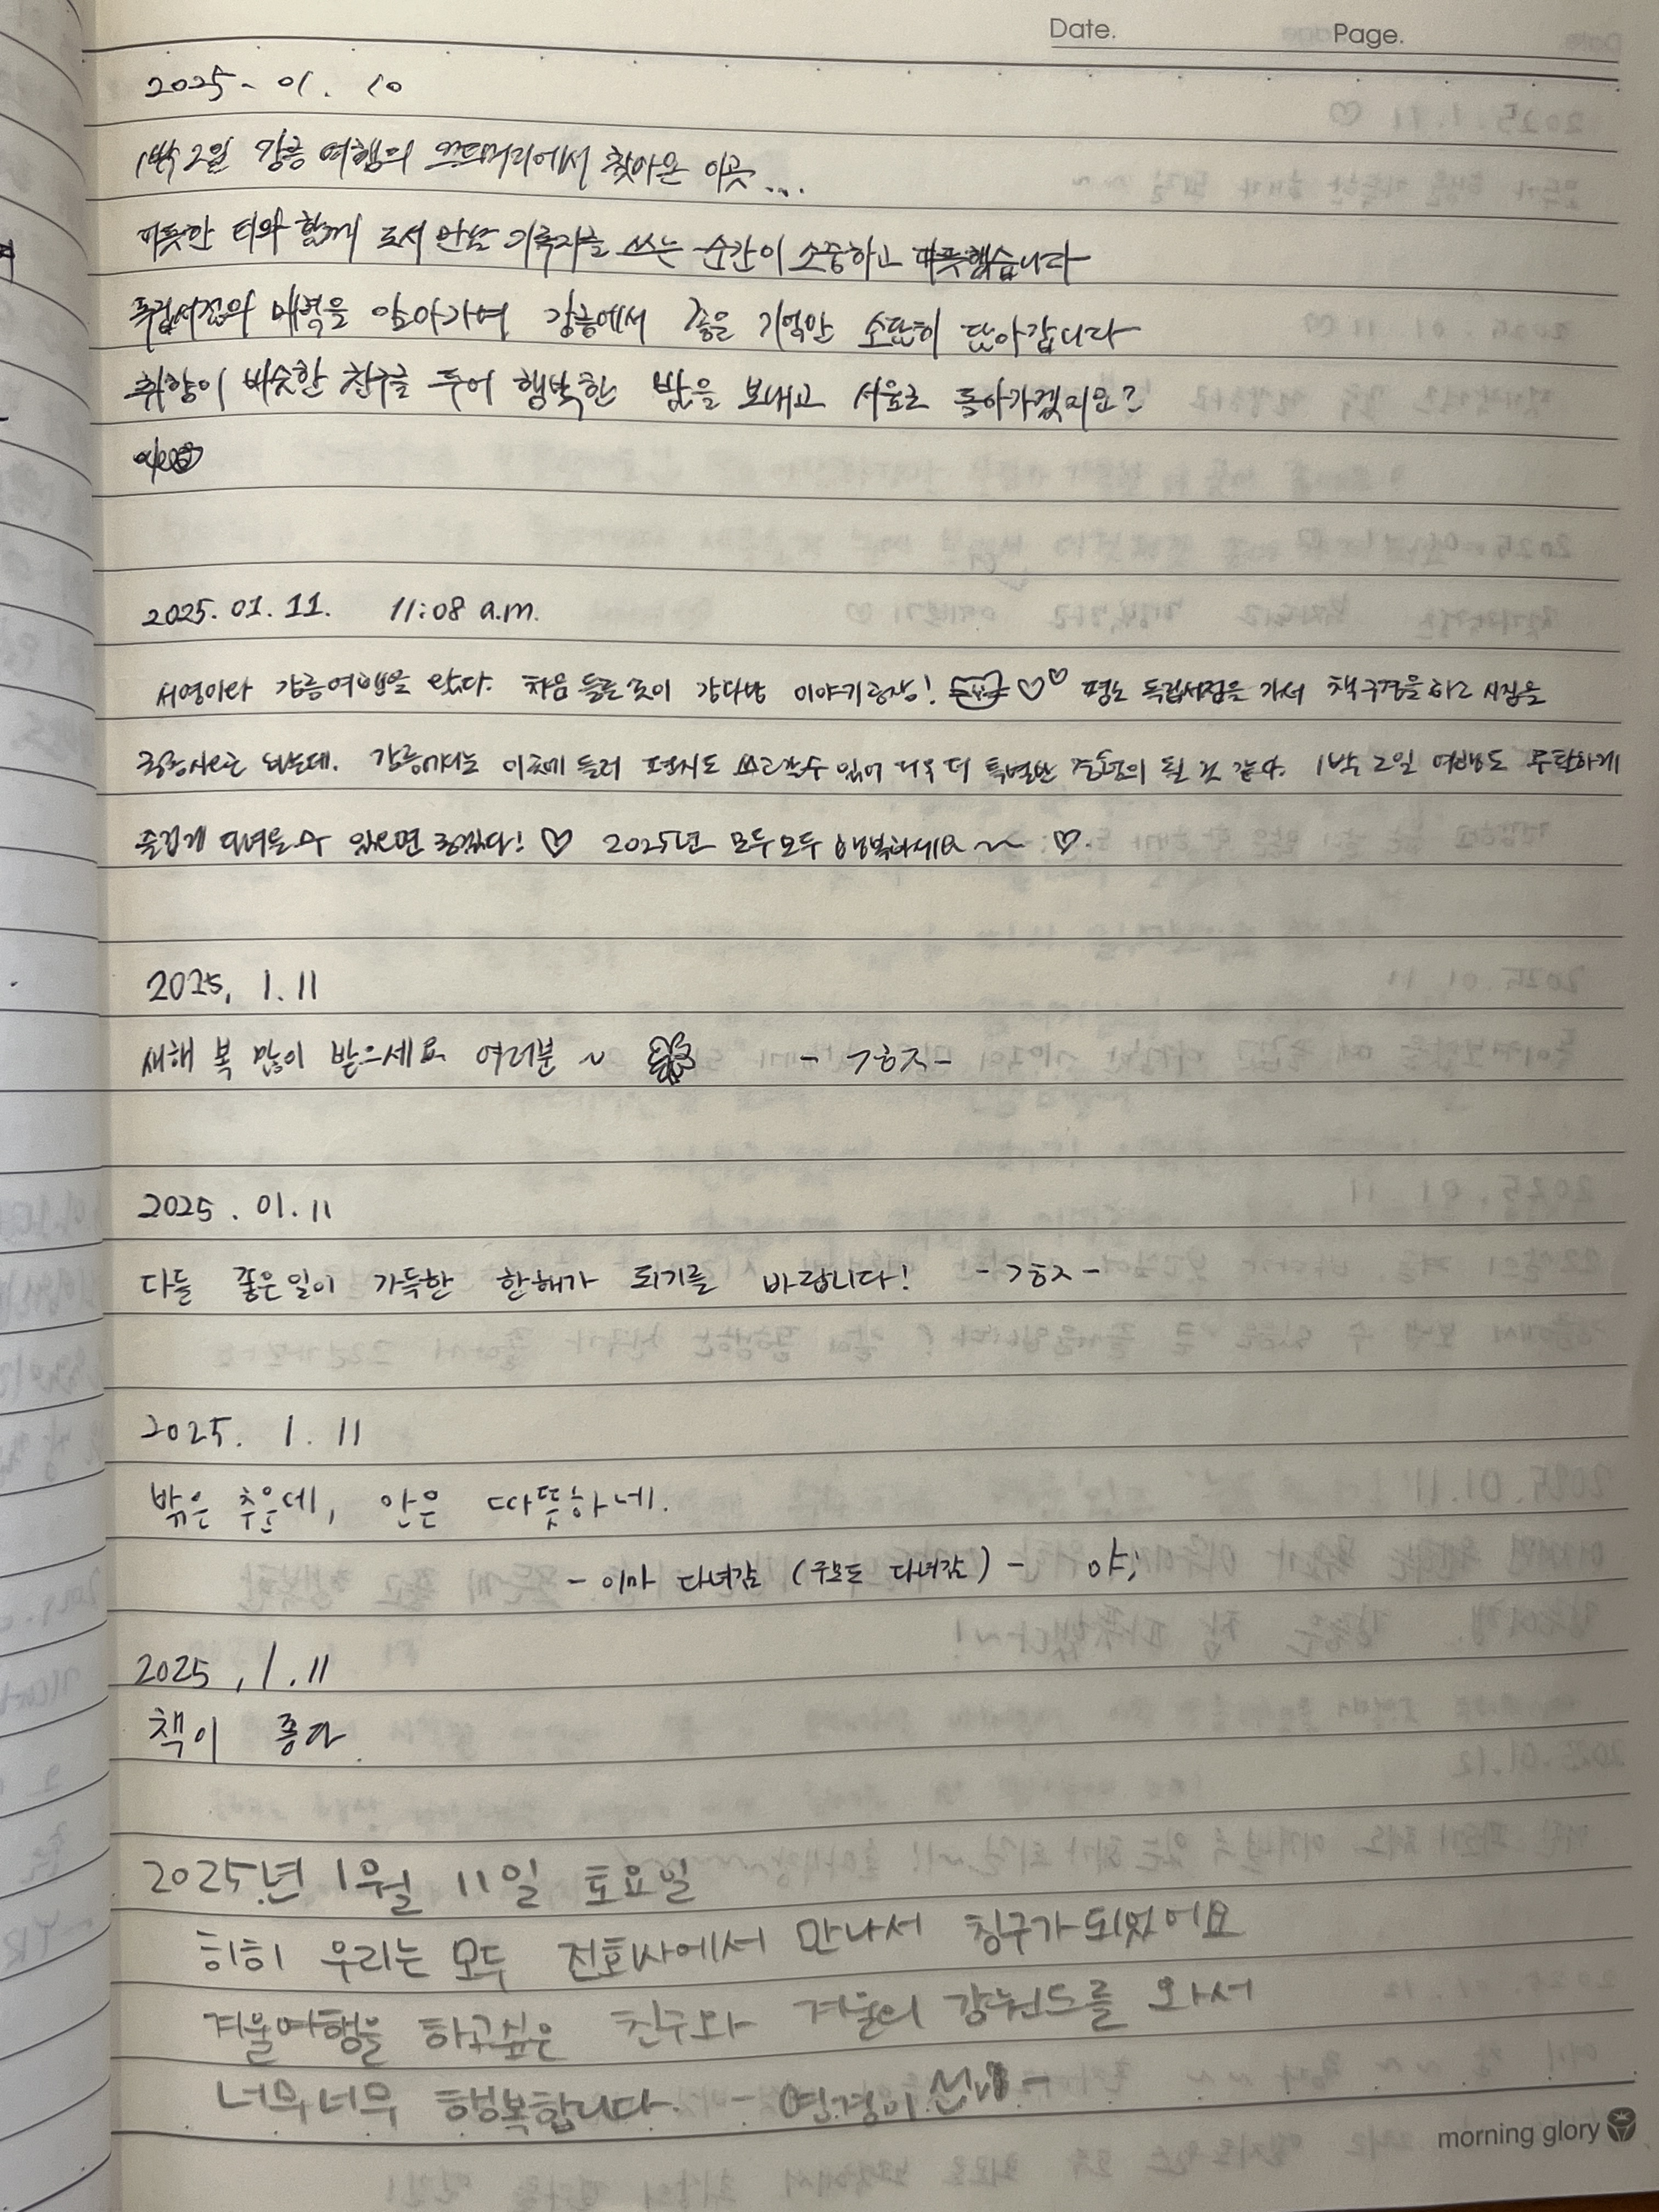 Date. Page.
2025-01. 10
1박 2일 강릉 여행의 끄트머리에서 찾아온 이곳...
따뜻한 티와 함께 도서 안날 기록지를 쓰는 순간이 소중하고 따뜻했습니다
독립서점의 매력을 알아가며 강릉에서 좋은 기억만 소담히 담아갑니다
취향이 비슷한 친구를 두어 행복한 밤을 보내고 서울로 돌아가겠지요?
2025. 01. 11. 11:08 a.m.
서영이와 강릉여행을 왔다. 처음 들른 곳이 강다방 이야기공장! ♡♡ 평소 독립서점을 가서 책구경을 하고 시집을
종종 사는 되는데. 강릉에서는 이곳에 들러 편지도 쓰고 갈 수 있어 더욱 더 특별한 경험이 될 것 같다. 1박 2일 여행도 무탈하게
즐겁게 다녀올 수 있으면 좋겠다! ♡ 2025년 모두모두 행복하세요~~ ♡.
2025. 1. 11
새해 복 많이 받으세요 여러분 ~ - ㄱㅎㅈ -
2025. 01. 11
다들 좋은일이 가득한 한해가 되기를 바랍니다! - ㄱㅎㅈ -
2025. 1. 11
밖은 추운데, 안은 따뜻하네.
- 이마 다녀감 (주모도 다녀감) - 야;
2025, 1. 11
책이 좋다.
2025년 1월 11일 토요일
히히 우리는 모두 전회사에서 만나서 칭구가 되었어요
겨울여행을 하고싶은 친구와 겨울의 강원도를 와서
너무너무 행복합니다. - 영경이
morning glory